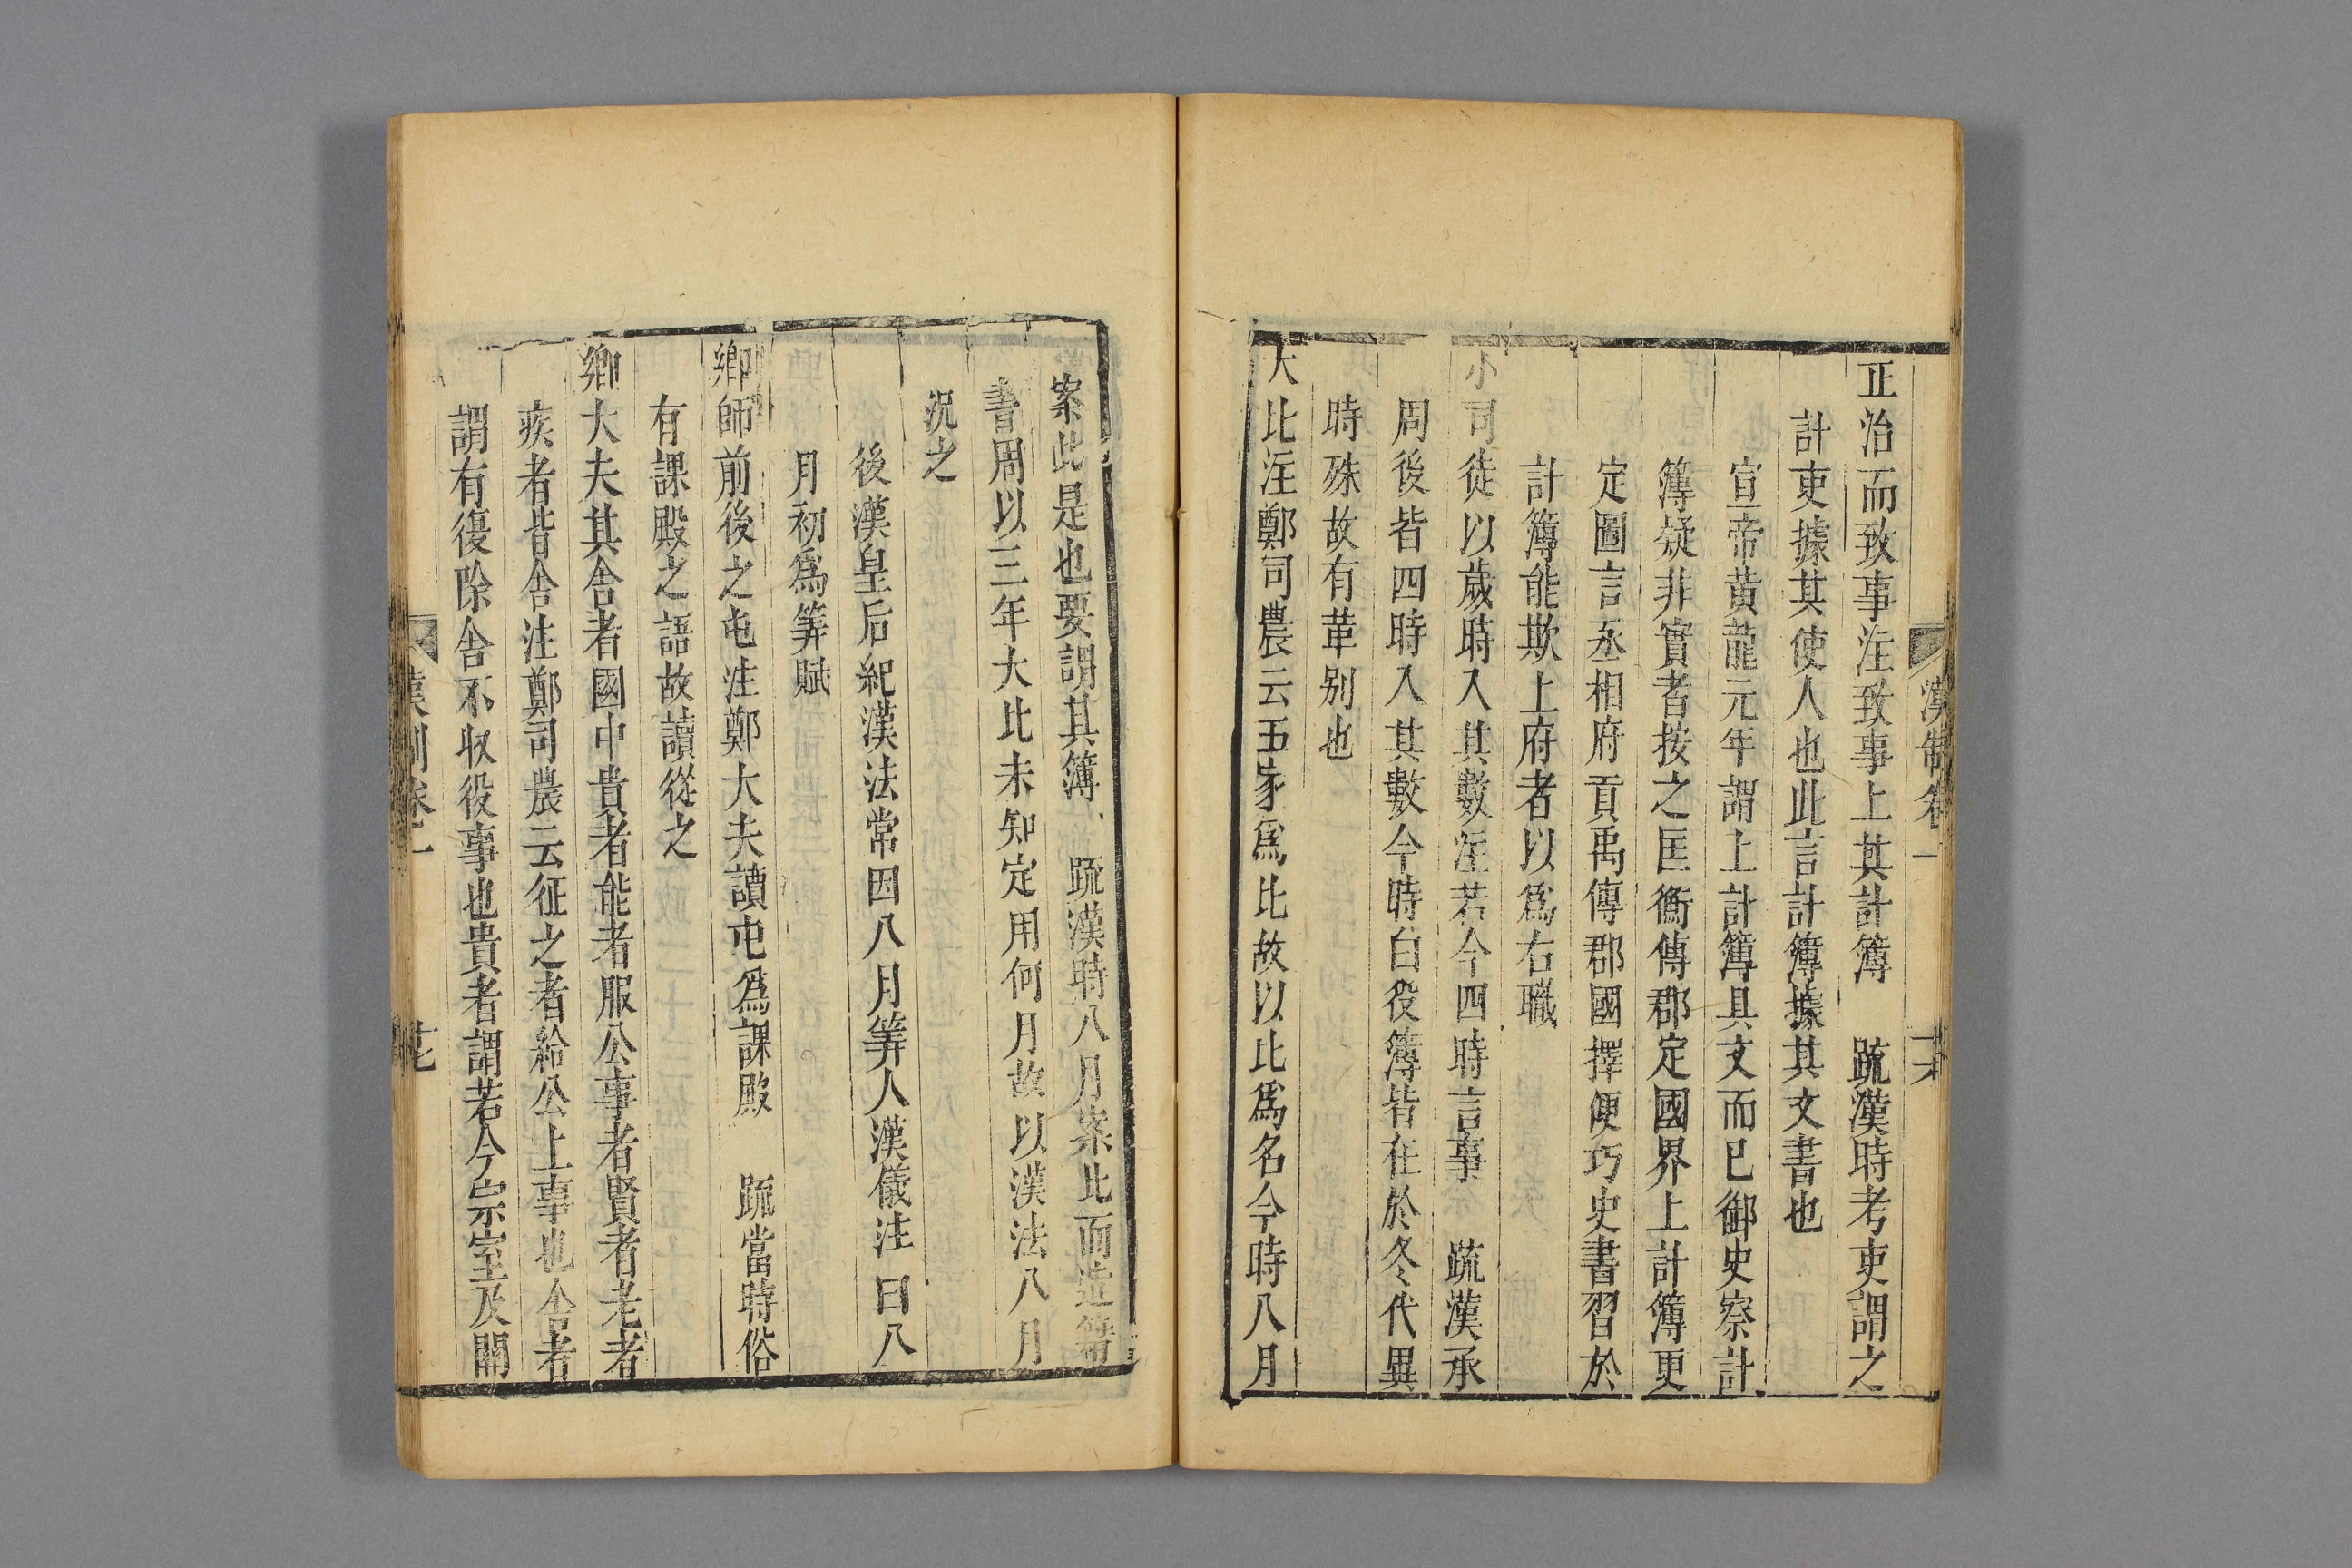 漢制卷一
正治而致事注致事上其計簿　疏漢時考吏謂之
計吏據其使人也此言計簿據其文書也
宣帝黄龍元年謂上計簿具文而已御史察計
簿疑非實者按之匡衡傳郡定國界上計簿更
定圖言丞相府貢禹傳郡國擇便巧史書習於
計簿能欺上府者以爲右職
小司徒以歲時入其數注若今四時言事　疏漢承
周後皆四時入其數今時白役簿皆在於冬代異
時殊故有革别也
大比注鄭司農云五家爲比故以比爲名今時八月
案此是也要謂其簿　疏漢時八月案比而造籍
書周以三年大比未知定用何月故以漢法八月
况之
後漢皇后紀漢法常因八月筭人漢儀注曰八
月初爲筭賦
鄉師前後之屯注鄭大夫讀屯爲課殿　疏當時俗
有課殿之語故讀從之
鄉大夫其舍者國中貴者能者服公事者賢者老者
疾者皆舍注鄭司農云征之者給公上事也舍者
謂有復除舍不收役事也貴者謂若今宗室及關
漢制卷一